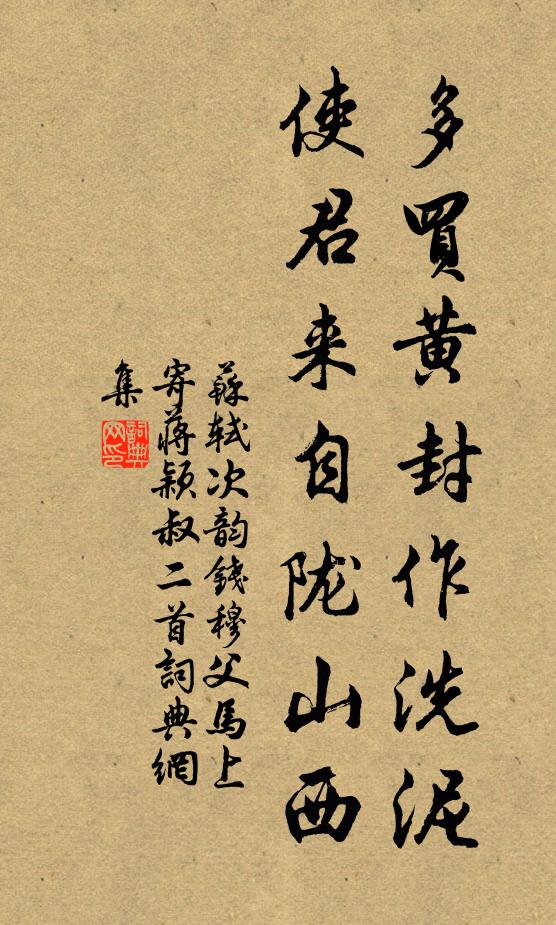 多買黄封作洗泥
使君来自陇山西
蘇軾次韵錢穆父馬上
寄蔣穎叔二首詞典網
集
詞典
网印